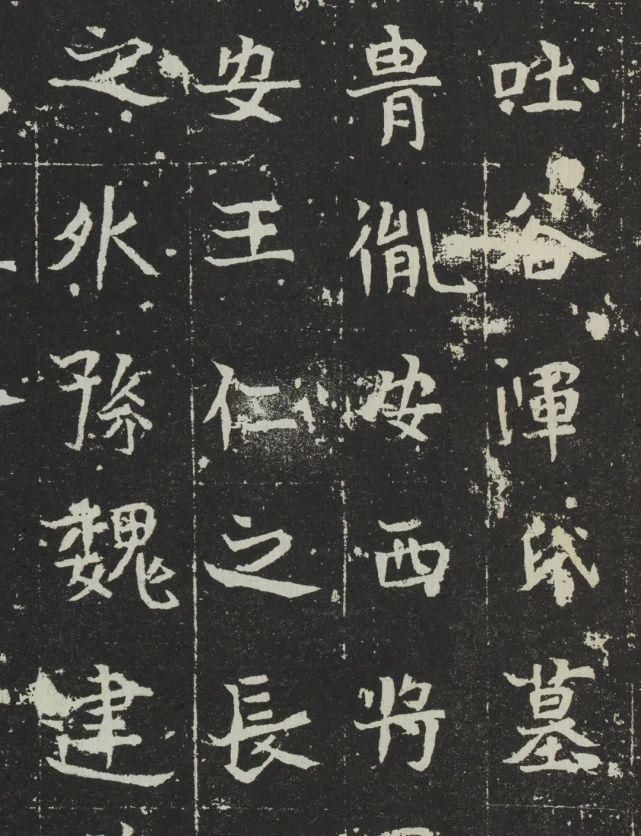 吐谷渾氏墓
胄胤安西将
安王仁之長
之外孫魏建